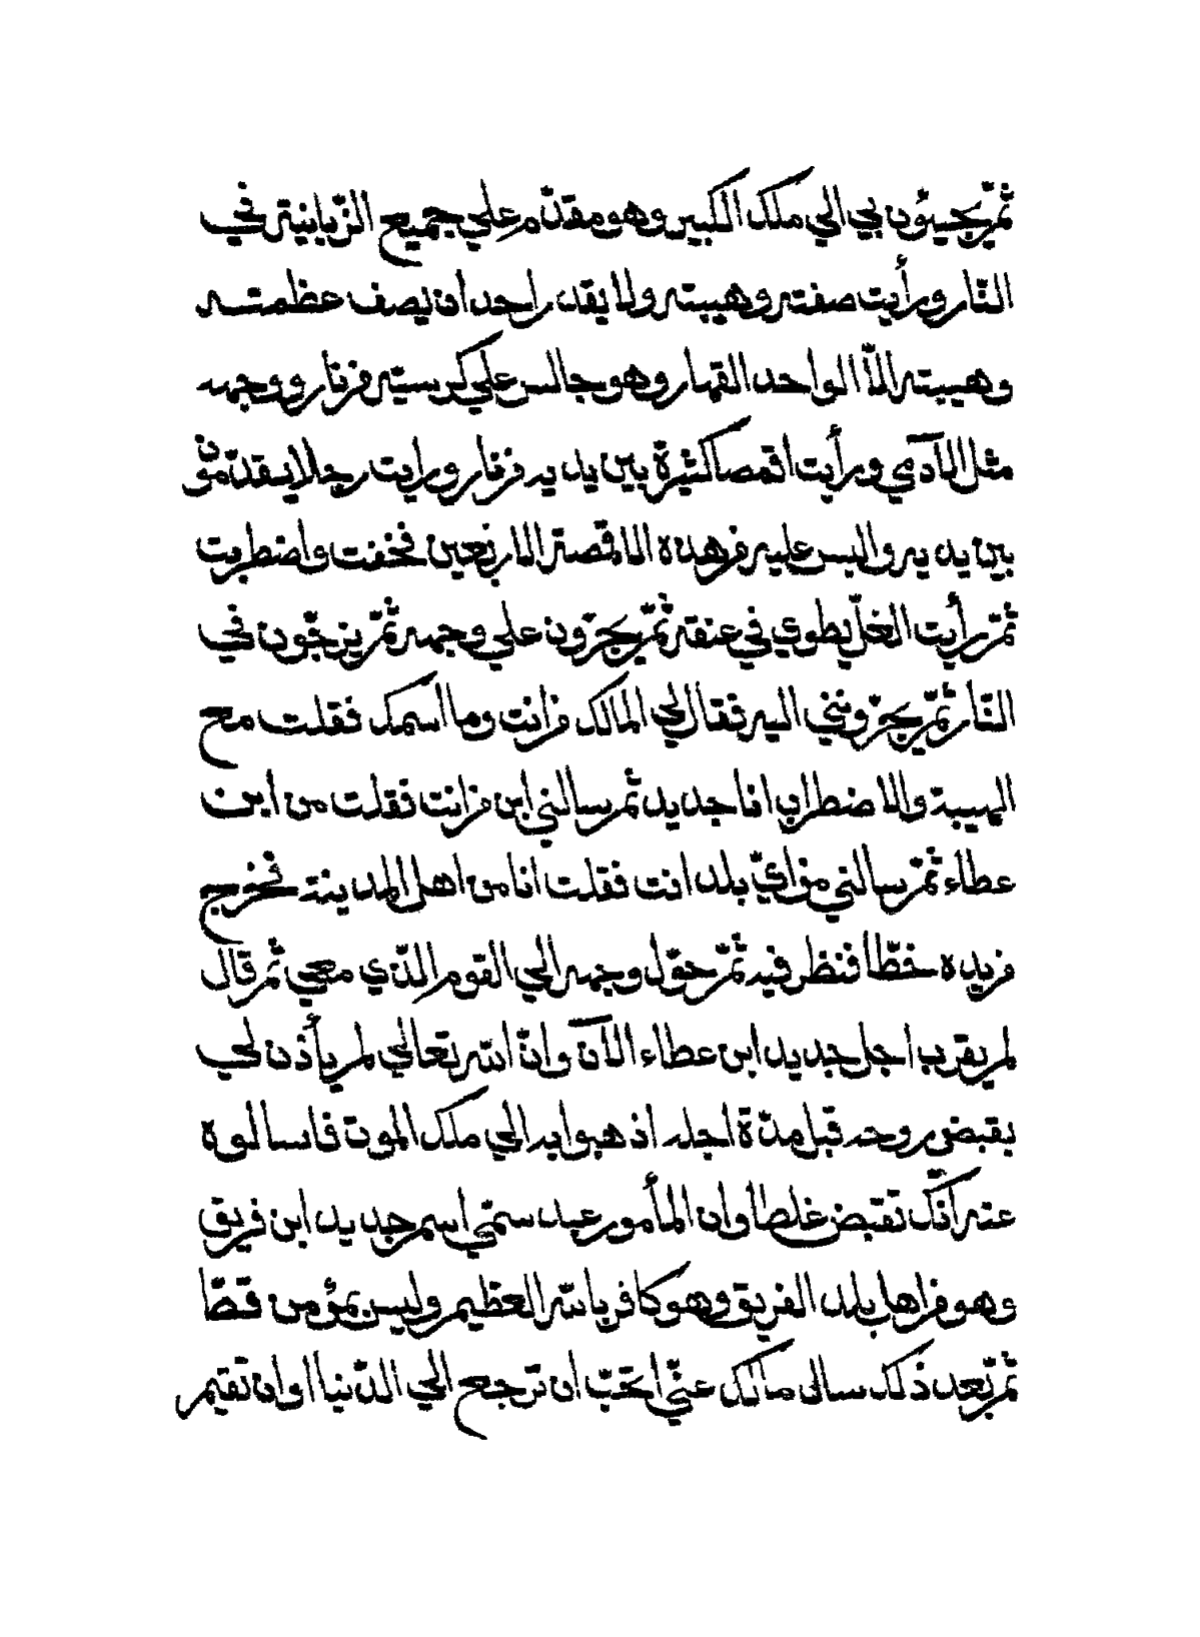 ثمّ يجيئون بي الي ملك الكبير وهو مقدّم علي جميع الزّبانية في
النّار ورأيت صفته وهيبته ولا يقدر احد ان يصف عظمته
وهيبته الاّ الواحد القهار وهو جالس علي كرسيّه من نار ووجهه
مثل الآدمي ورأيت اقمصا كثيرة بين يديه من نار ورايت رجالا يقدّمون
بين يديه والبس عليه من هذه الاقمصة الاربعين فخفت واضطربت
ثمّ رأيت الغلّ يطوي في عنقه ثمّ يجرّون علي وجهه ثمّ يزجّون في
النّار ثمّ يجرّونني اليه فقال لي المالك من انت وما اسمك فقلت مع
الهيبة والاضطراب انا جديد ثم سالني ابن من انت فقلت من ابن
عطاء ثمّ سالني من ايّ بلد انت فقلت انا من اهل المدينة فخرج
من يده خطّا فنظر فيه ثمّ حوّل وجهه الي القوم الّذي معي ثم قال
لم يقرب اجل جديد ابن عطاء الآن وانّ الله تعالي لم يأذن لي
بقبض روحه قبل مدّة اجله اذهبوا به الي ملك الموت فاسالوه
عنه انّك تقبض غلطا وان المأمور عبد سمّي اسم جديد ابن فريق
وهو من اهل بلد الفريق وهو كافر بالله العظيم وليس بمؤمن قطّا
ثمّ بعد ذلك سالي مالك عنّي اتحبّ ان ترجع الي الدّنيا او ان تقيم